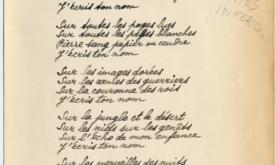 J'écris ton nom
Sur toutes les pages lues
Sur toutes les pages blanches
Pierre sang papier ou cendre
J'écris ton nom
Sur les images dorées
Sur les armes des guerriers
Sur la couronne des rois
J'écris ton nom
Sur la jungle et le désert
Sur les nids sur les genêts
Sur l'écho de mon enfance
J'écris ton nom
Sur les merveilles des nuits